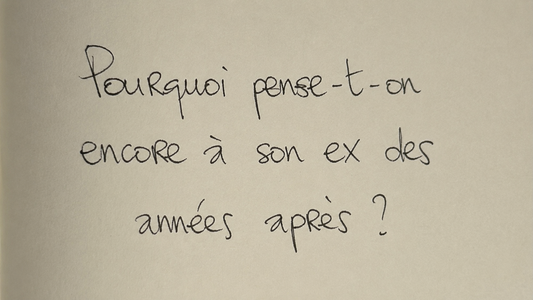 Pourquoi pense-t-on
encore à son ex des
années après ?